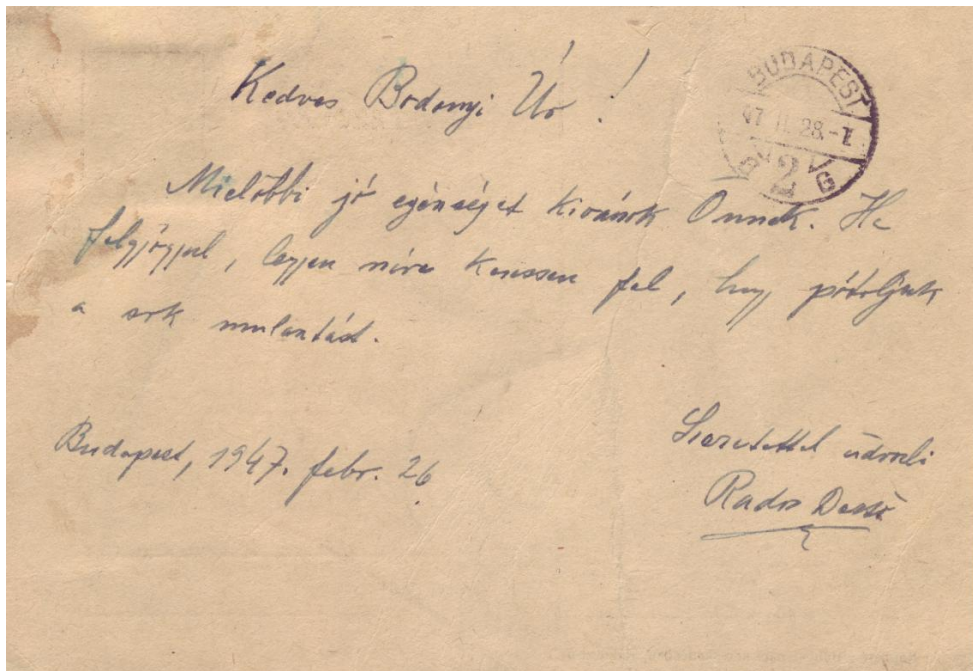 Kedves Bodonyi Úr!
BUDAPEST
47 II. 28.-I
2
G
Mielőbbi jó egészséget kivánok Önnek. Ha
felgyógyul, legyen szíves keressen fel, hogy pótoljuk
a sok mulasztást.
Budapest, 1947. febr. 26
Szeretettel üdvözli
Rados Dezső